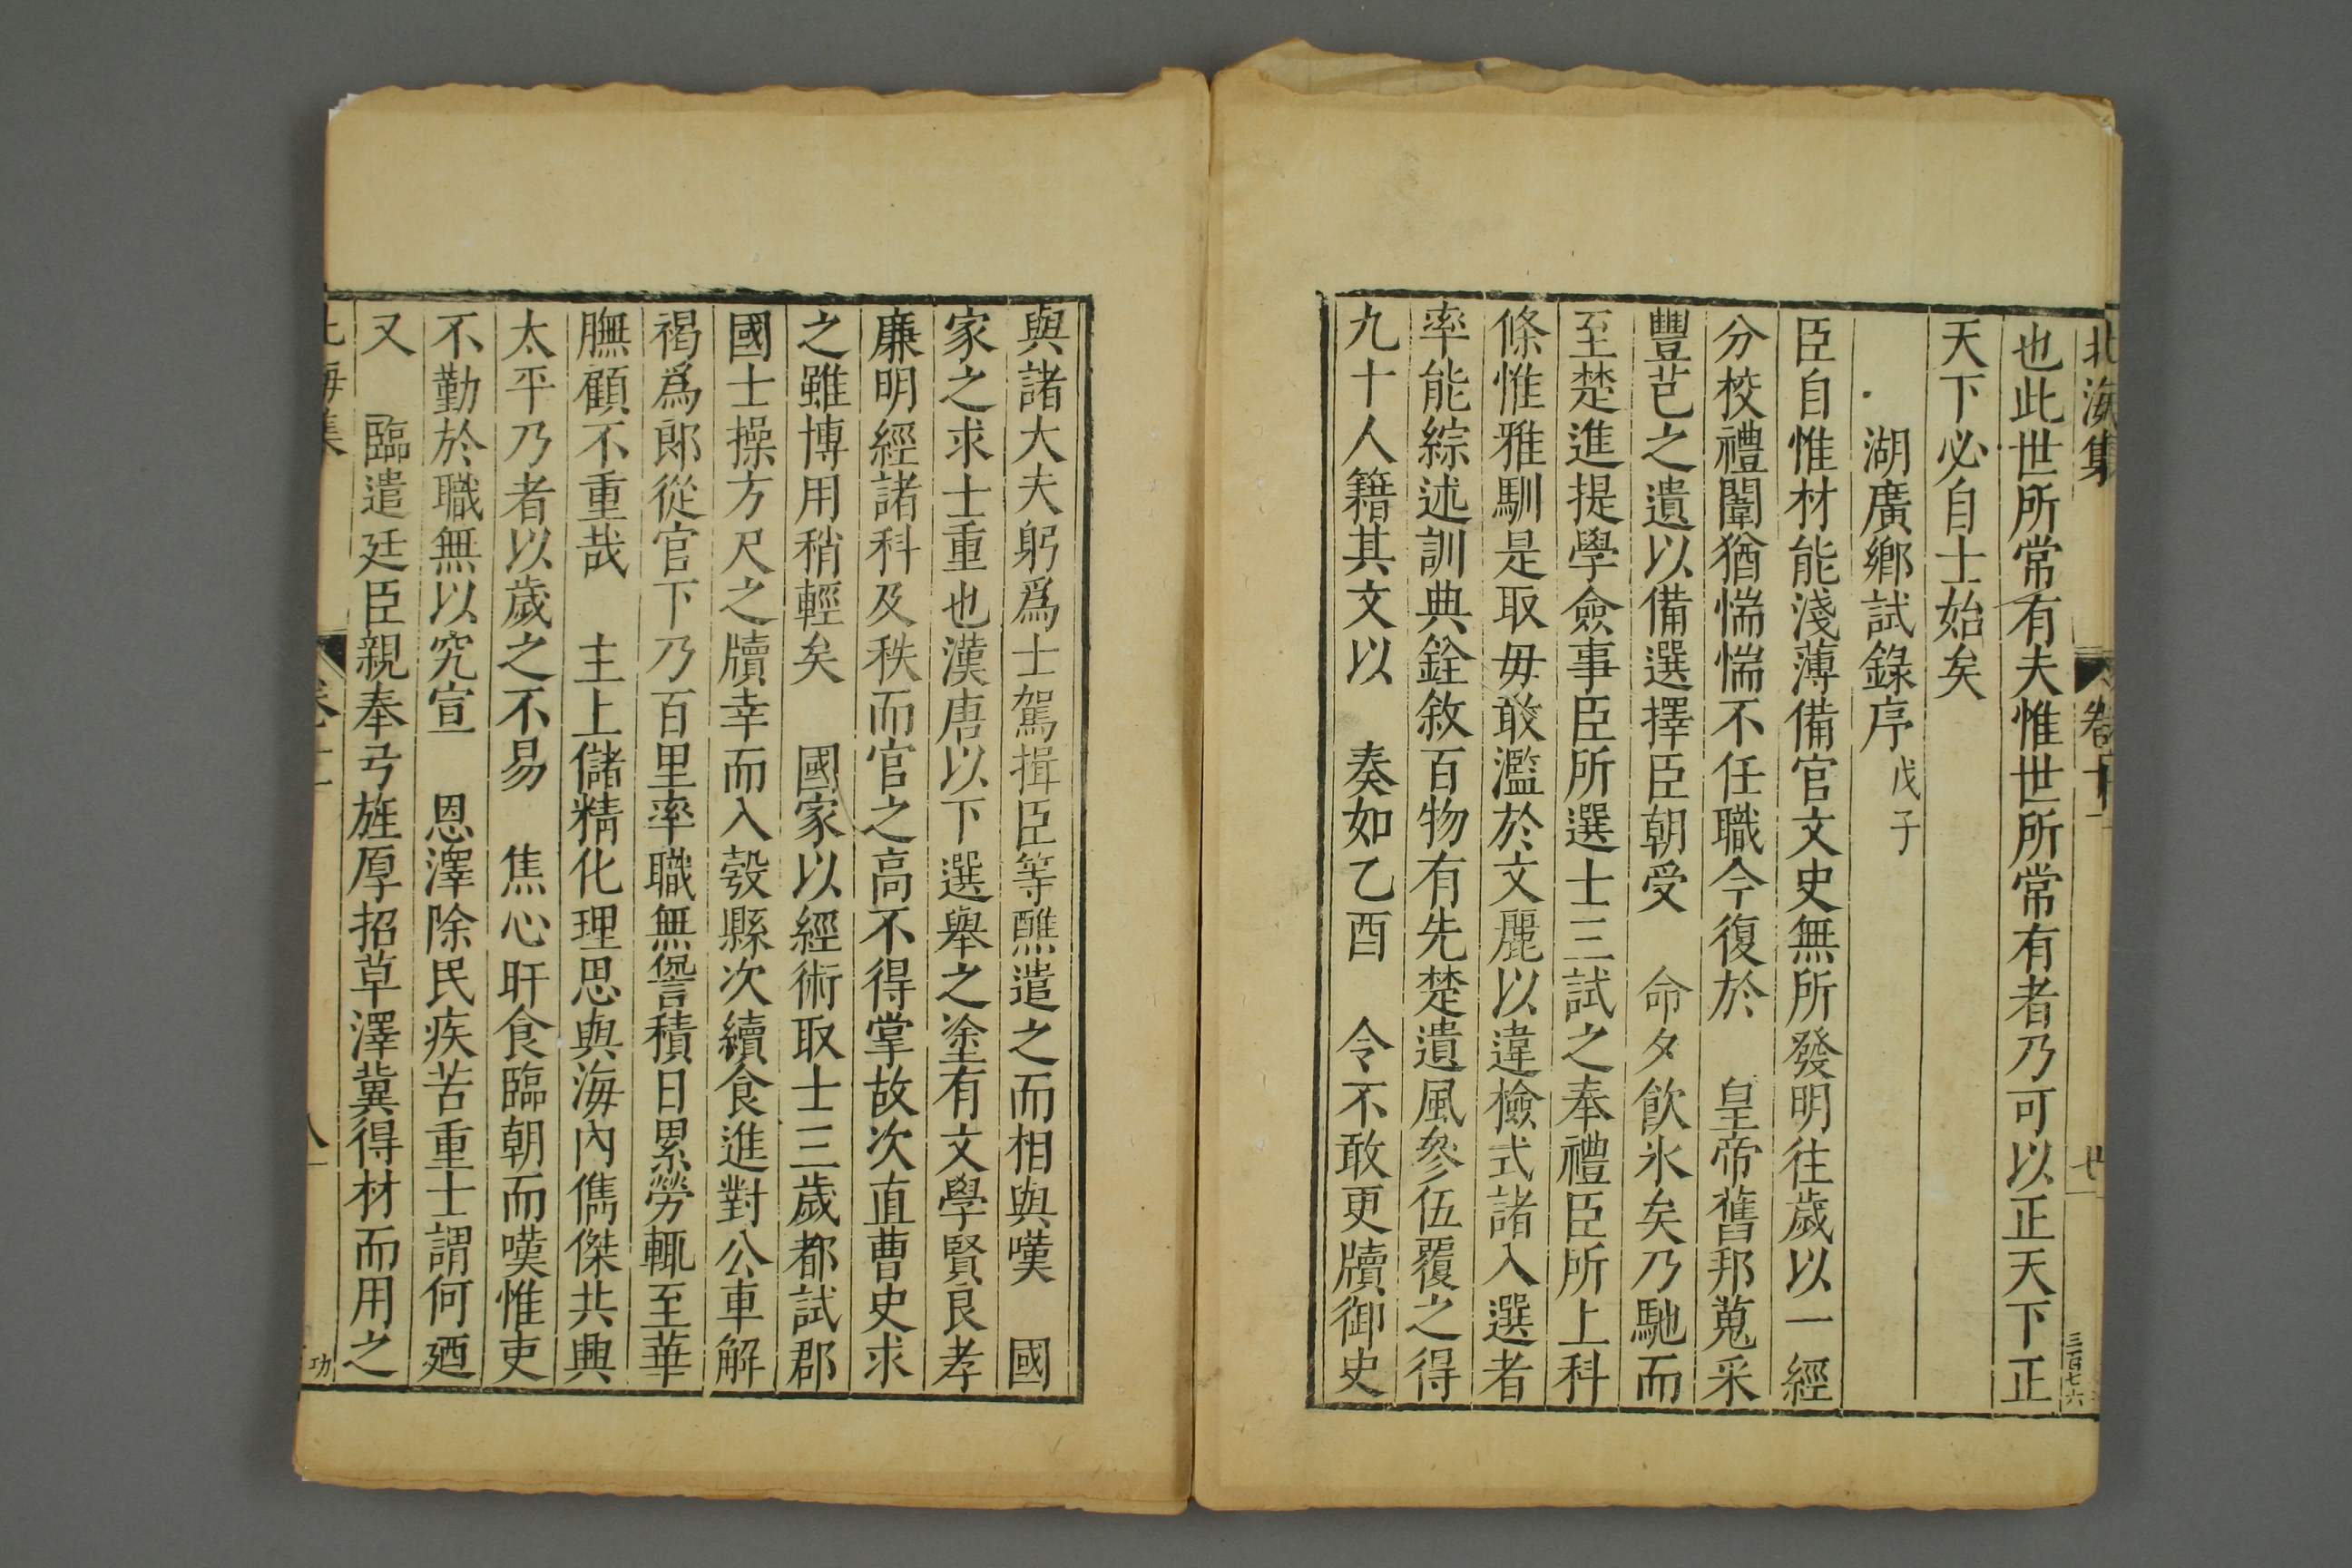 北海集 卷十 七 三百七六
也此世所常有夫惟世所常有者乃可以正天下正
天下必自士始矣
湖廣鄉試錄序 戊子
臣自惟材能淺薄備官文史無所發明往歲以一經
分校禮闈猶惴惴不任職今復於 皇帝舊邦蒐采
豐芑之遺以備選擇臣朝受 命夕飲氷矣乃馳而
至楚進提學僉事臣所選士三試之奉禮臣所上科
條惟雅馴是取毋敢濫於文麗以違檢式諸入選者
率能綜述訓典銓敘百物有先楚遺風參伍覆之得
九十人籍其文以 奏如乙酉 令不敢更牘御史
與諸大夫躬爲士駕揖臣等醮遣之而相與嘆 國
家之求士重也漢唐以下選舉之塗有文學賢良孝
廉明經諸科及秩而官之高不得掌故次直曹史求
之雖博用稍輕矣 國家以經術取士三歲都試郡
國士操方尺之牘幸而入彀縣次續食進對公車解
褐爲郎從官下乃百里率職無諐積日累勞輒至華
膴顧不重哉 主上儲精化理思與海內儁傑共興
太平乃者以歲之不易 焦心旰食臨朝而嘆惟吏
不勤於職無以究宣 恩澤除民疾苦重士謂何廼
又 臨遣廷臣親奉弓旌厚招草澤冀得材而用之
海集 卷十 八 功